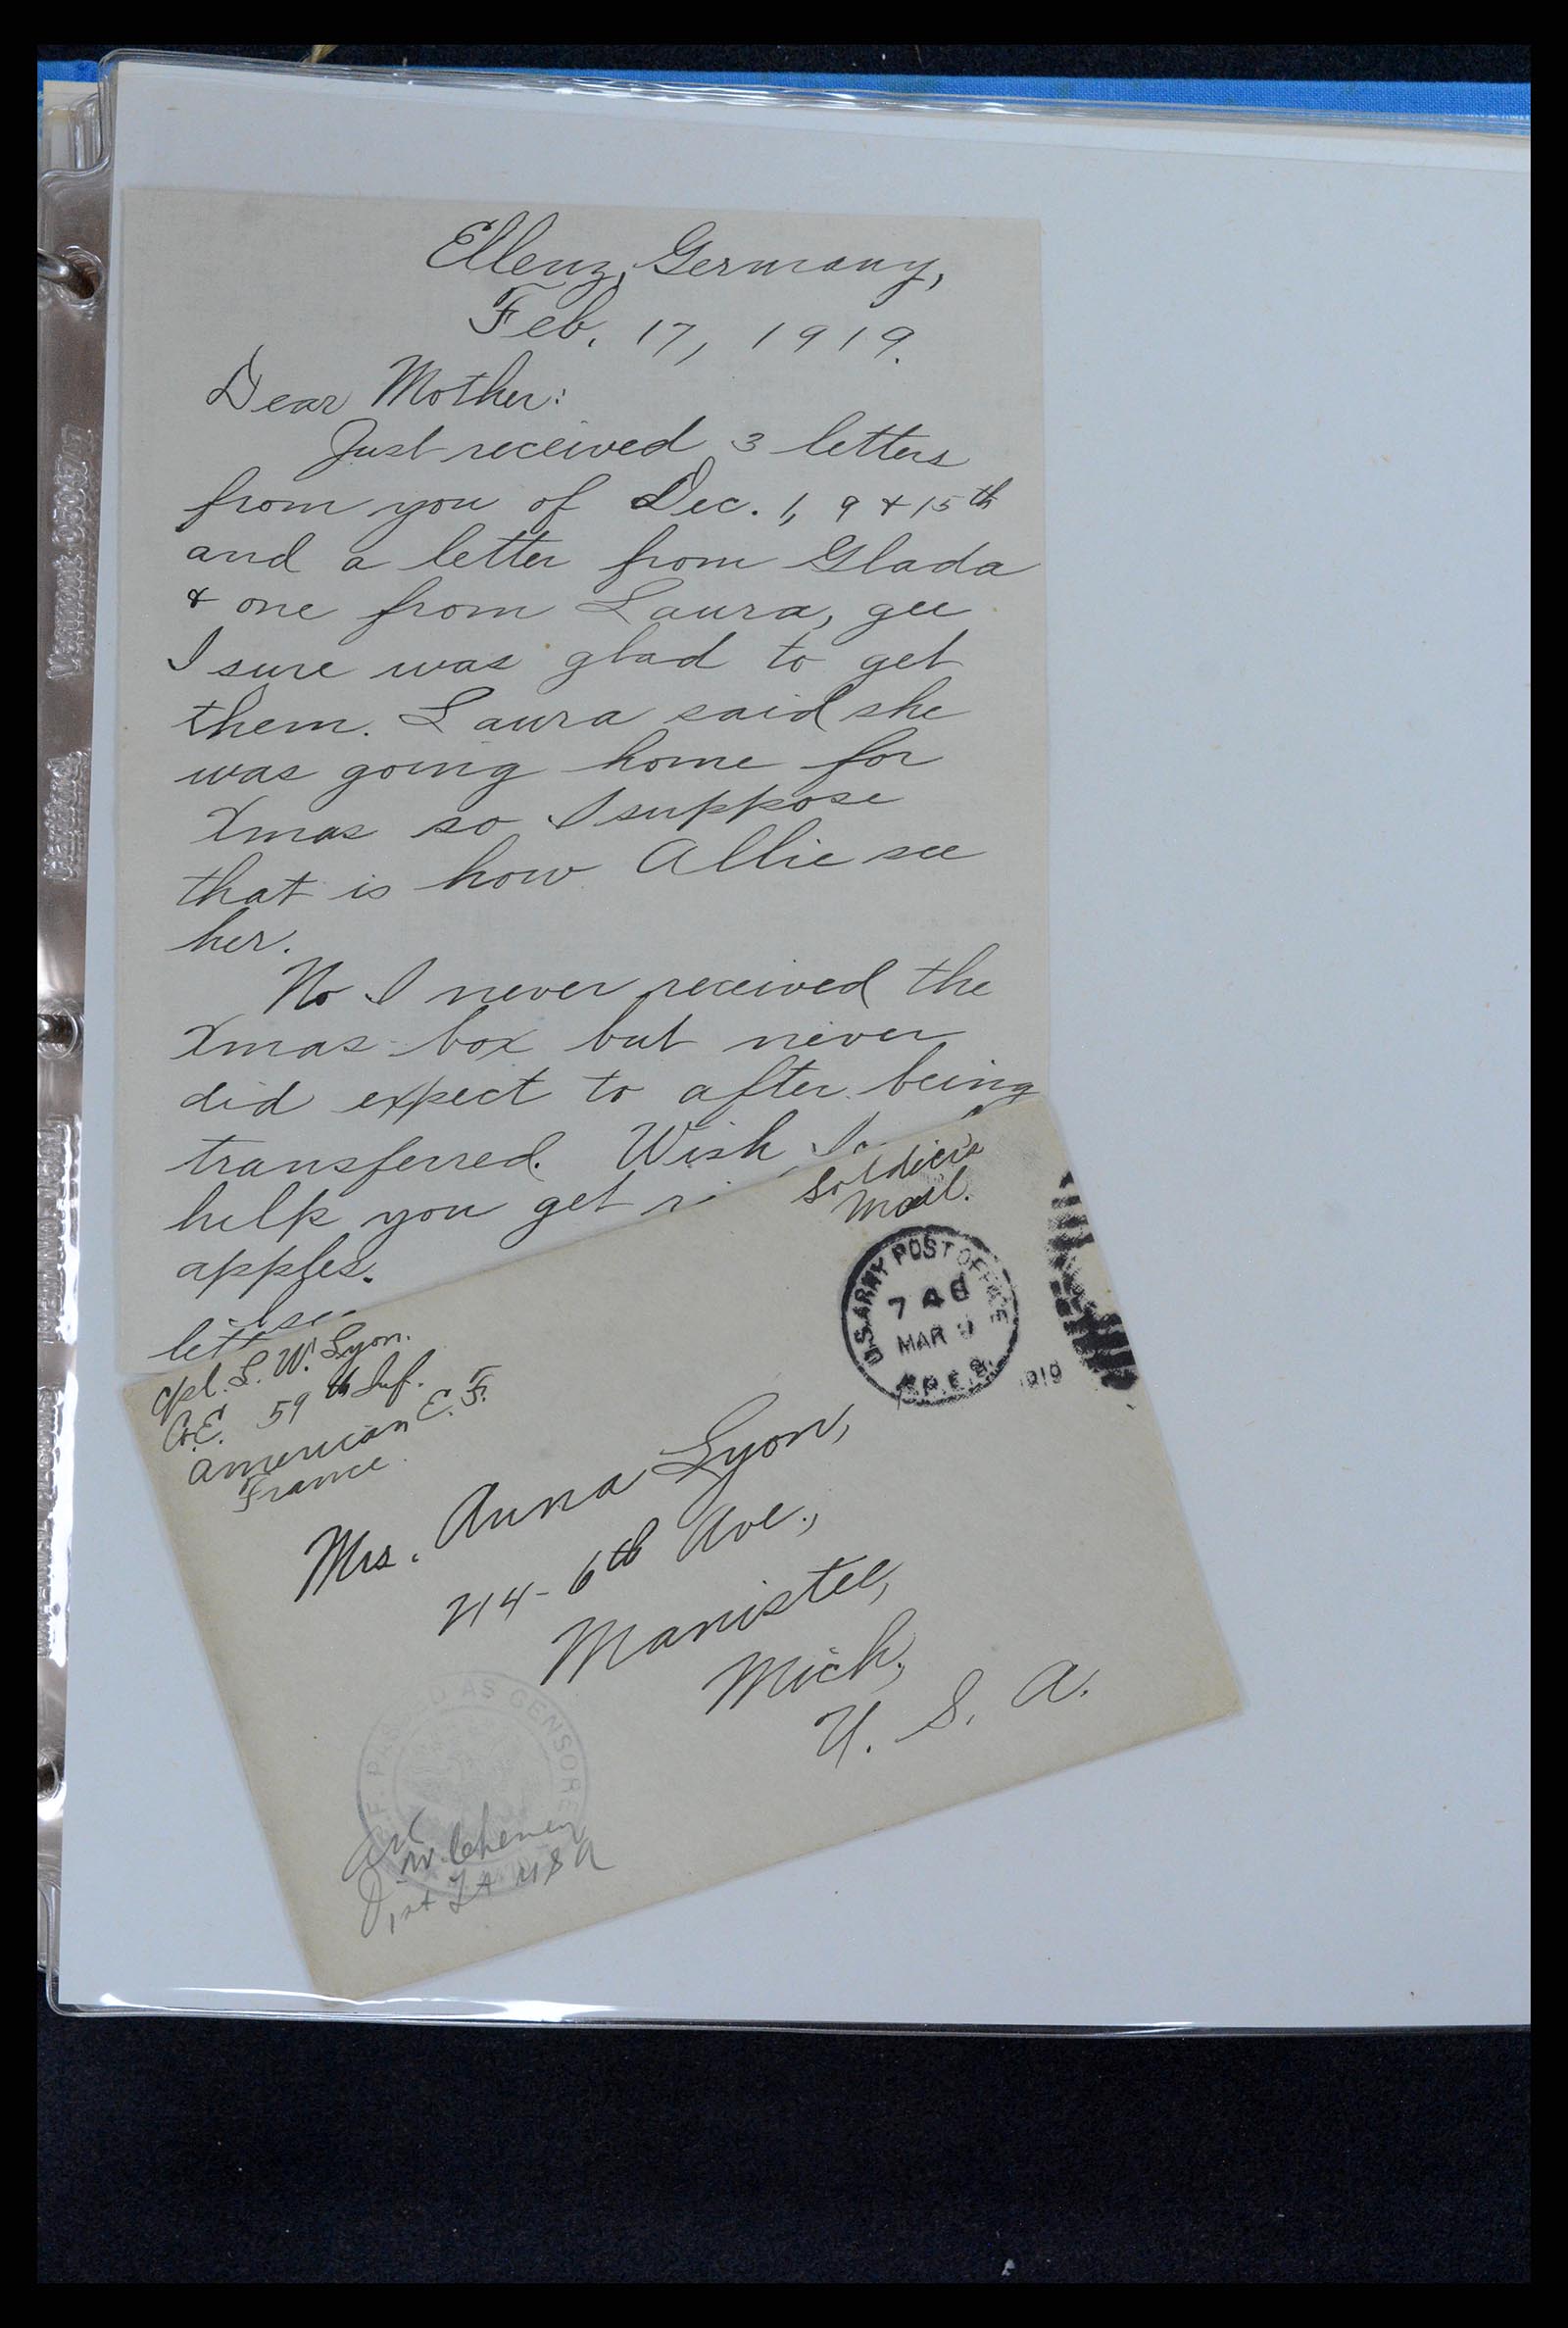 Ellenz, Germany,
Feb. 17, 1919.
Dear Mother:
Just received 3 letters
from you of Dec. 1, 9 & 15th
and a letter from Glada
& one from Laura, gee
I sure was glad to get
them. Laura said she
was going home for
Xmas so I suppose
that is how Allie see
her.
No I never received the
Xmas box but never
did expect to after being
transferred. Wish I
help you get
apples.
Soldier's
Mail.
U.S. ARMY POST OFFICE
748
MAR 9
1919
Cpl. L. W. Lyon.
Co. E. 59th Inf.
American E. F.
France.
Mrs. Anna Lyon,
214 - 6th Ave.,
Manistee,
Mich,
U. S. A.
PASSED AS CENSORED
W. Cheney
1st Lt USA